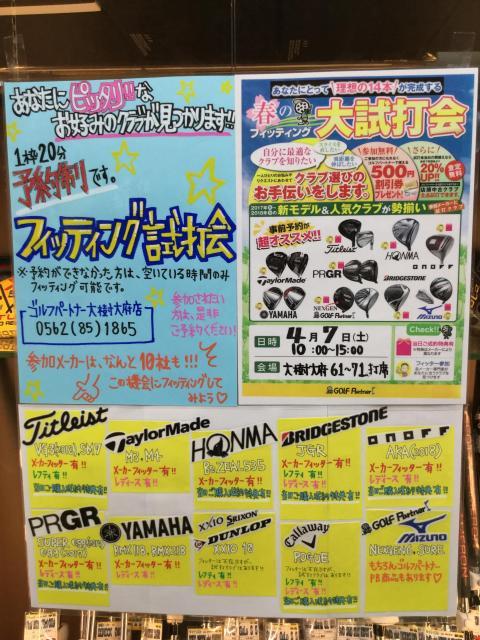 あなたにピッタリ!!な
お好みのクラブが見つかります!!
1枠20分
予約制です。
フィッティング試打会
※予約ができなかった方は、空いている時間のみ
フィッティング可能です。
ゴルフパートナー大樹大府店
0562(85)1865
参加されたい
方は、是非
ご予約ください!
参加メーカーは、なんと10社も!!!
この機会にフィッティングして
みよう♡
あなたにとって「理想の14本」が完成する
春の
フィッティング
大試打会
自分に最適な
クラブを知りたい
参加無料!
クラブ選びの
お手伝いをします。
500円
割引券
プレゼント!
さらに!
20%
UP!!
2017年
2018年
の新モデル&人気クラブが勢揃い
事前予約が
超オススメ!!
Titleist
HONMA
ONOFF
TaylorMade
PRGR
BRIDGESTONE
YAMAHA
NEXGEN
GOLF Partner
MIZUNO
日時
4月7日(土)
10:00~15:00
会場
大樹大府 61~71打席
Check!!
当日ご成約特典有
フィッター参加
GOLF Partner
Titleist
メーカーフィッター有!!
レフティ有!!
TaylorMade
M3.M4
メーカーフィッター有!!
レディース有!!
HONMA
Be ZEAL535
メーカーフィッター有!!
BRIDGESTONE
JGR
メーカーフィッター有!!
レフティ有!!
ONOFF
AKA(2018)
メーカーフィッター有!!
レディース有!!
PRGR
メーカーフィッター有!!
レフティ有!!
YAMAHA
RMX118.RMX218
メーカーフィッター有!!
レディース有!!
XXIO SRIXON
DUNLOP
XXIO 10
レフティ有!!
レディース有!!
Callaway
ROGUE
レフティ有!!
レディース有!!
GOLF Partner
MIZUNO
もちろんゴルフパートナー
PB商品もあります♡